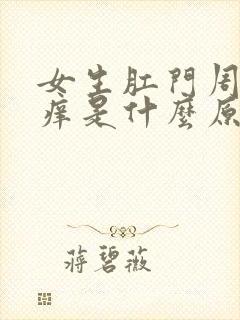 女生肛門周
痒是什麼原
蔣碧薇